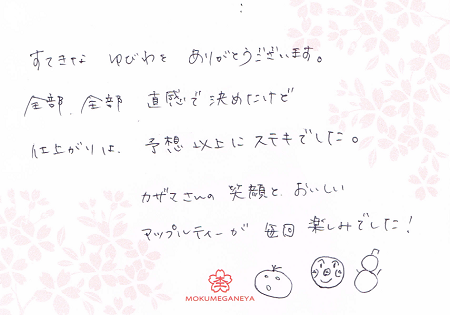 すてきな ゆびわを ありがとうございます。
全部、全部 直感で決めたけど
仕上がりは、予想以上にステキでした。
カザマさんの 笑顔と、おいしい
アップルティーが 毎回 楽しみでした！
MOKUMEGANEYA